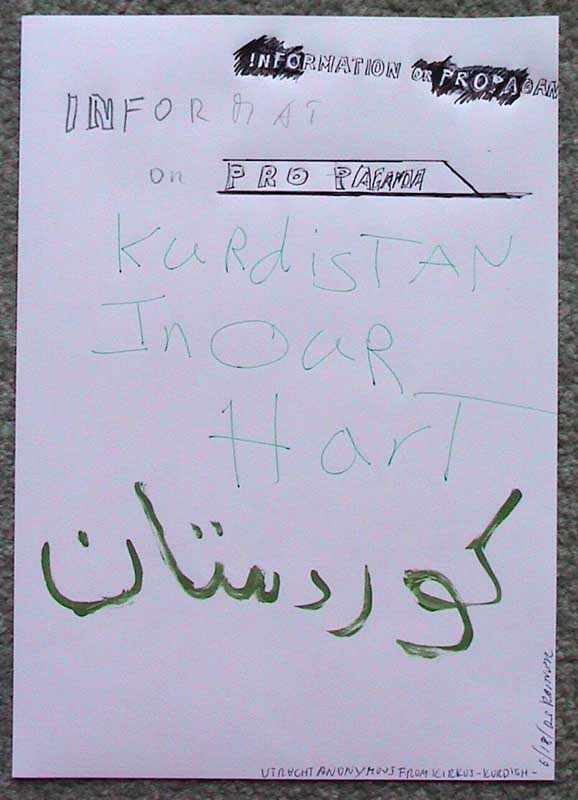 INFORMATION OR PROPAGAN
INFORMAT
on PROPAGANDA
KuRdisTAN
In OuR
HarT
كوردستان
UTRECHT ANONYMOUS FROM KIRKUS-KURDISH-